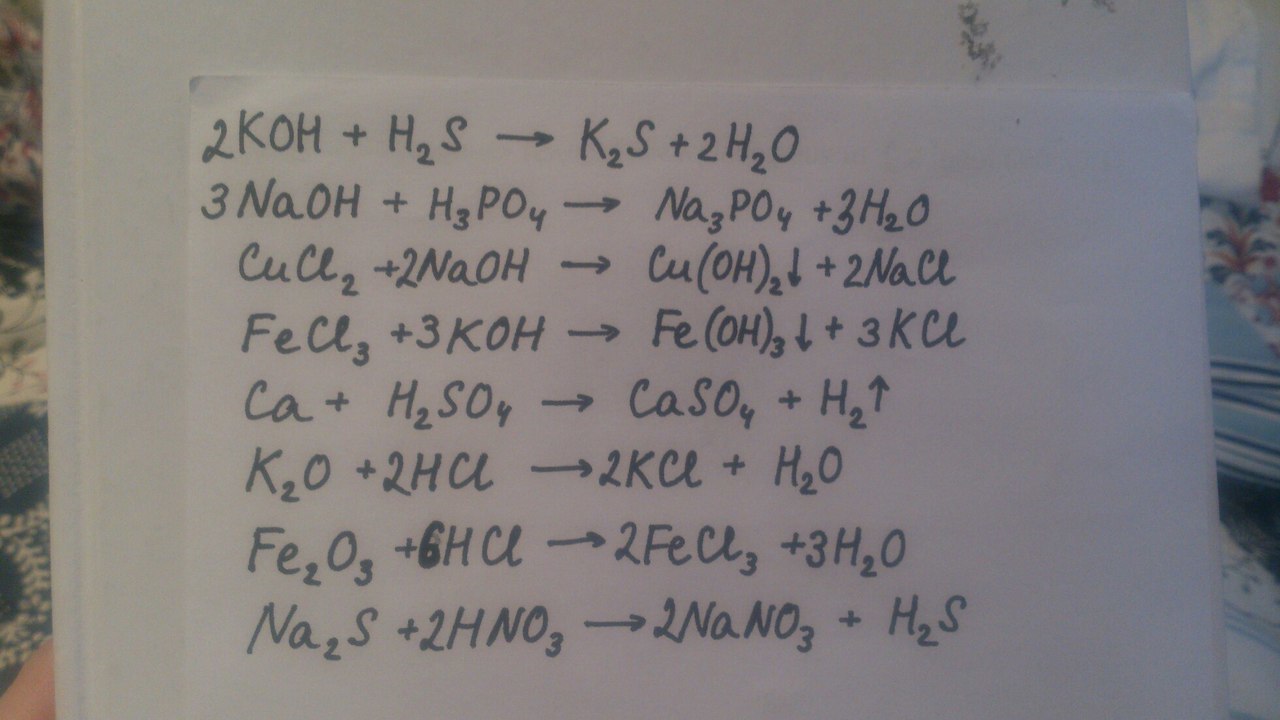 2KOH + H₂S → K₂S + 2H₂O
3NaOH + H₃PO₄ → Na₃PO₄ + 3H₂O
CuCl₂ + 2NaOH → Cu(OH)₂↓ + 2NaCl
FeCl₃ + 3KOH → Fe(OH)₃↓ + 3KCl
Ca + H₂SO₄ → CaSO₄ + H₂↑
K₂O + 2HCl → 2KCl + H₂O
Fe₂O₃ + 6HCl → 2FeCl₃ + 3H₂O
Na₂S + 2HNO₃ → 2NaNO₃ + H₂S